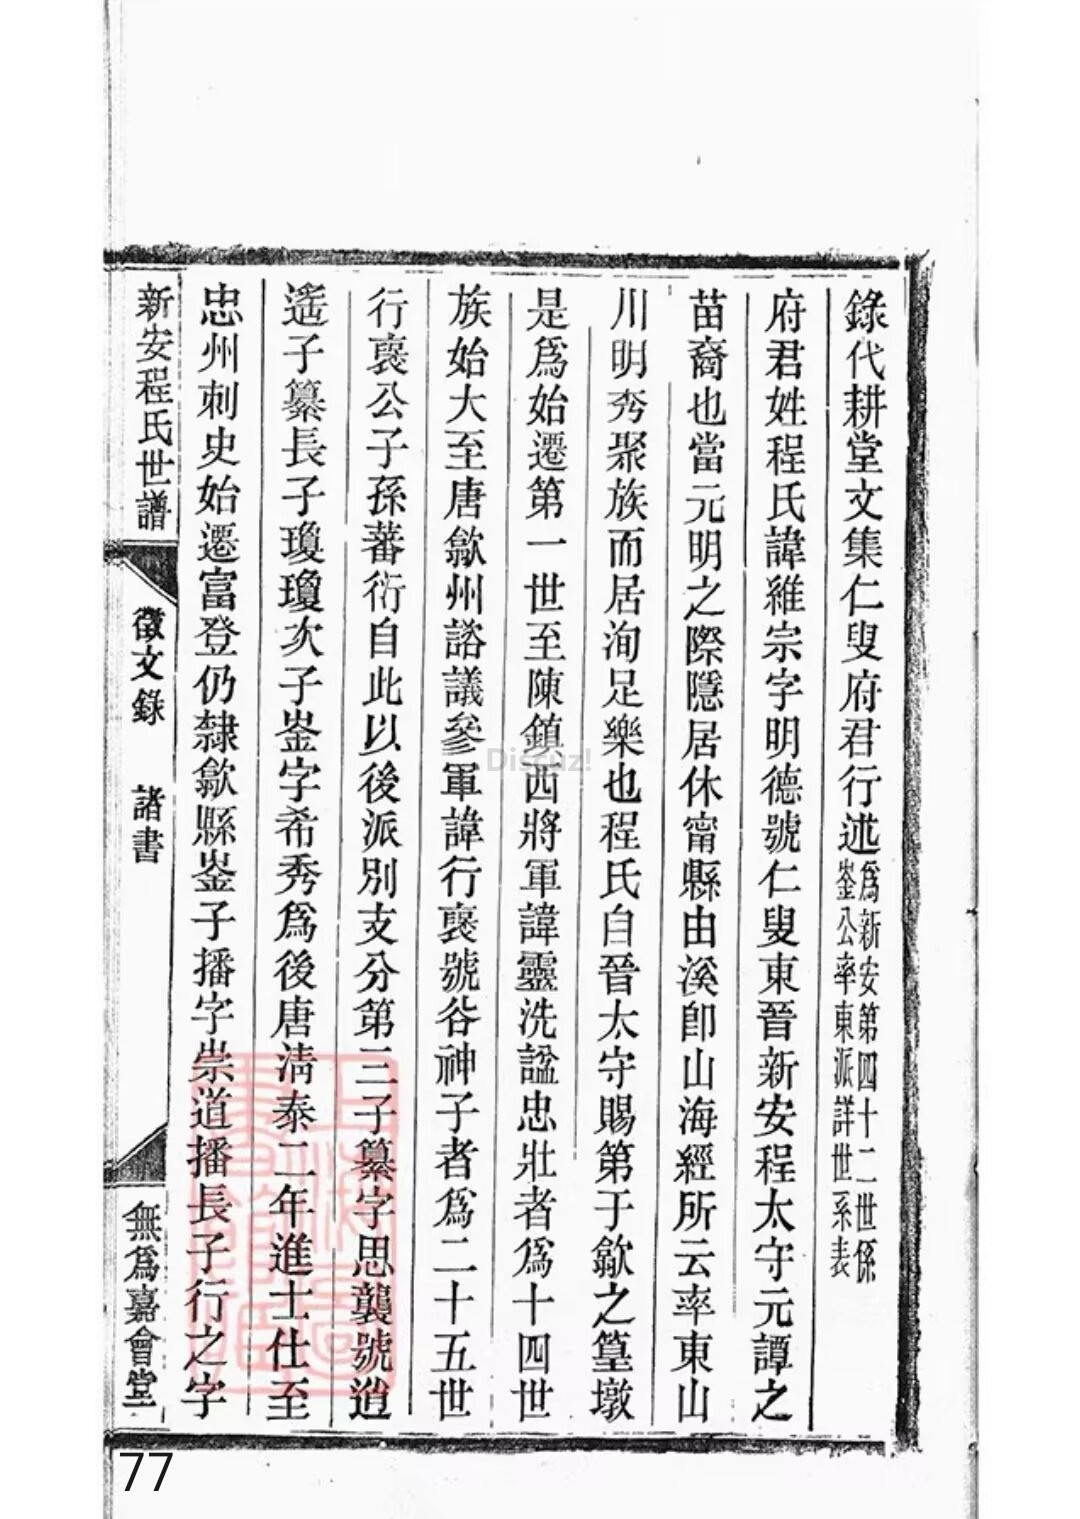 錄代耕堂文集仁叟府君行述為新安第四十二世係
崟公率東派詳世系表
府君姓程氏諱維宗字明德號仁叟東晉新安程太守元譚之
苗裔也當元明之際隱居休甯縣由溪卽山海經所云率東山
川明秀聚族而居洵足樂也程氏自晉太守賜第于歙之篁墩
是爲始遷第一世至陳鎮西將軍諱靈洗諡忠壯者爲十四世
族始大至唐歙州諮議參軍諱行裦號谷神子者爲二十五世
行裦公子孫蕃衍自此以後派別支分第三子纂字思襲號逍
遙子纂長子瓊瓊次子崟字希秀爲後唐淸泰二年進士仕至
忠州刺史始遷富登仍隸歙縣崟子播字崇道播長子行之字
新安程氏世譜
徵文錄 諸書
無爲嘉會堂
Discuz!
77